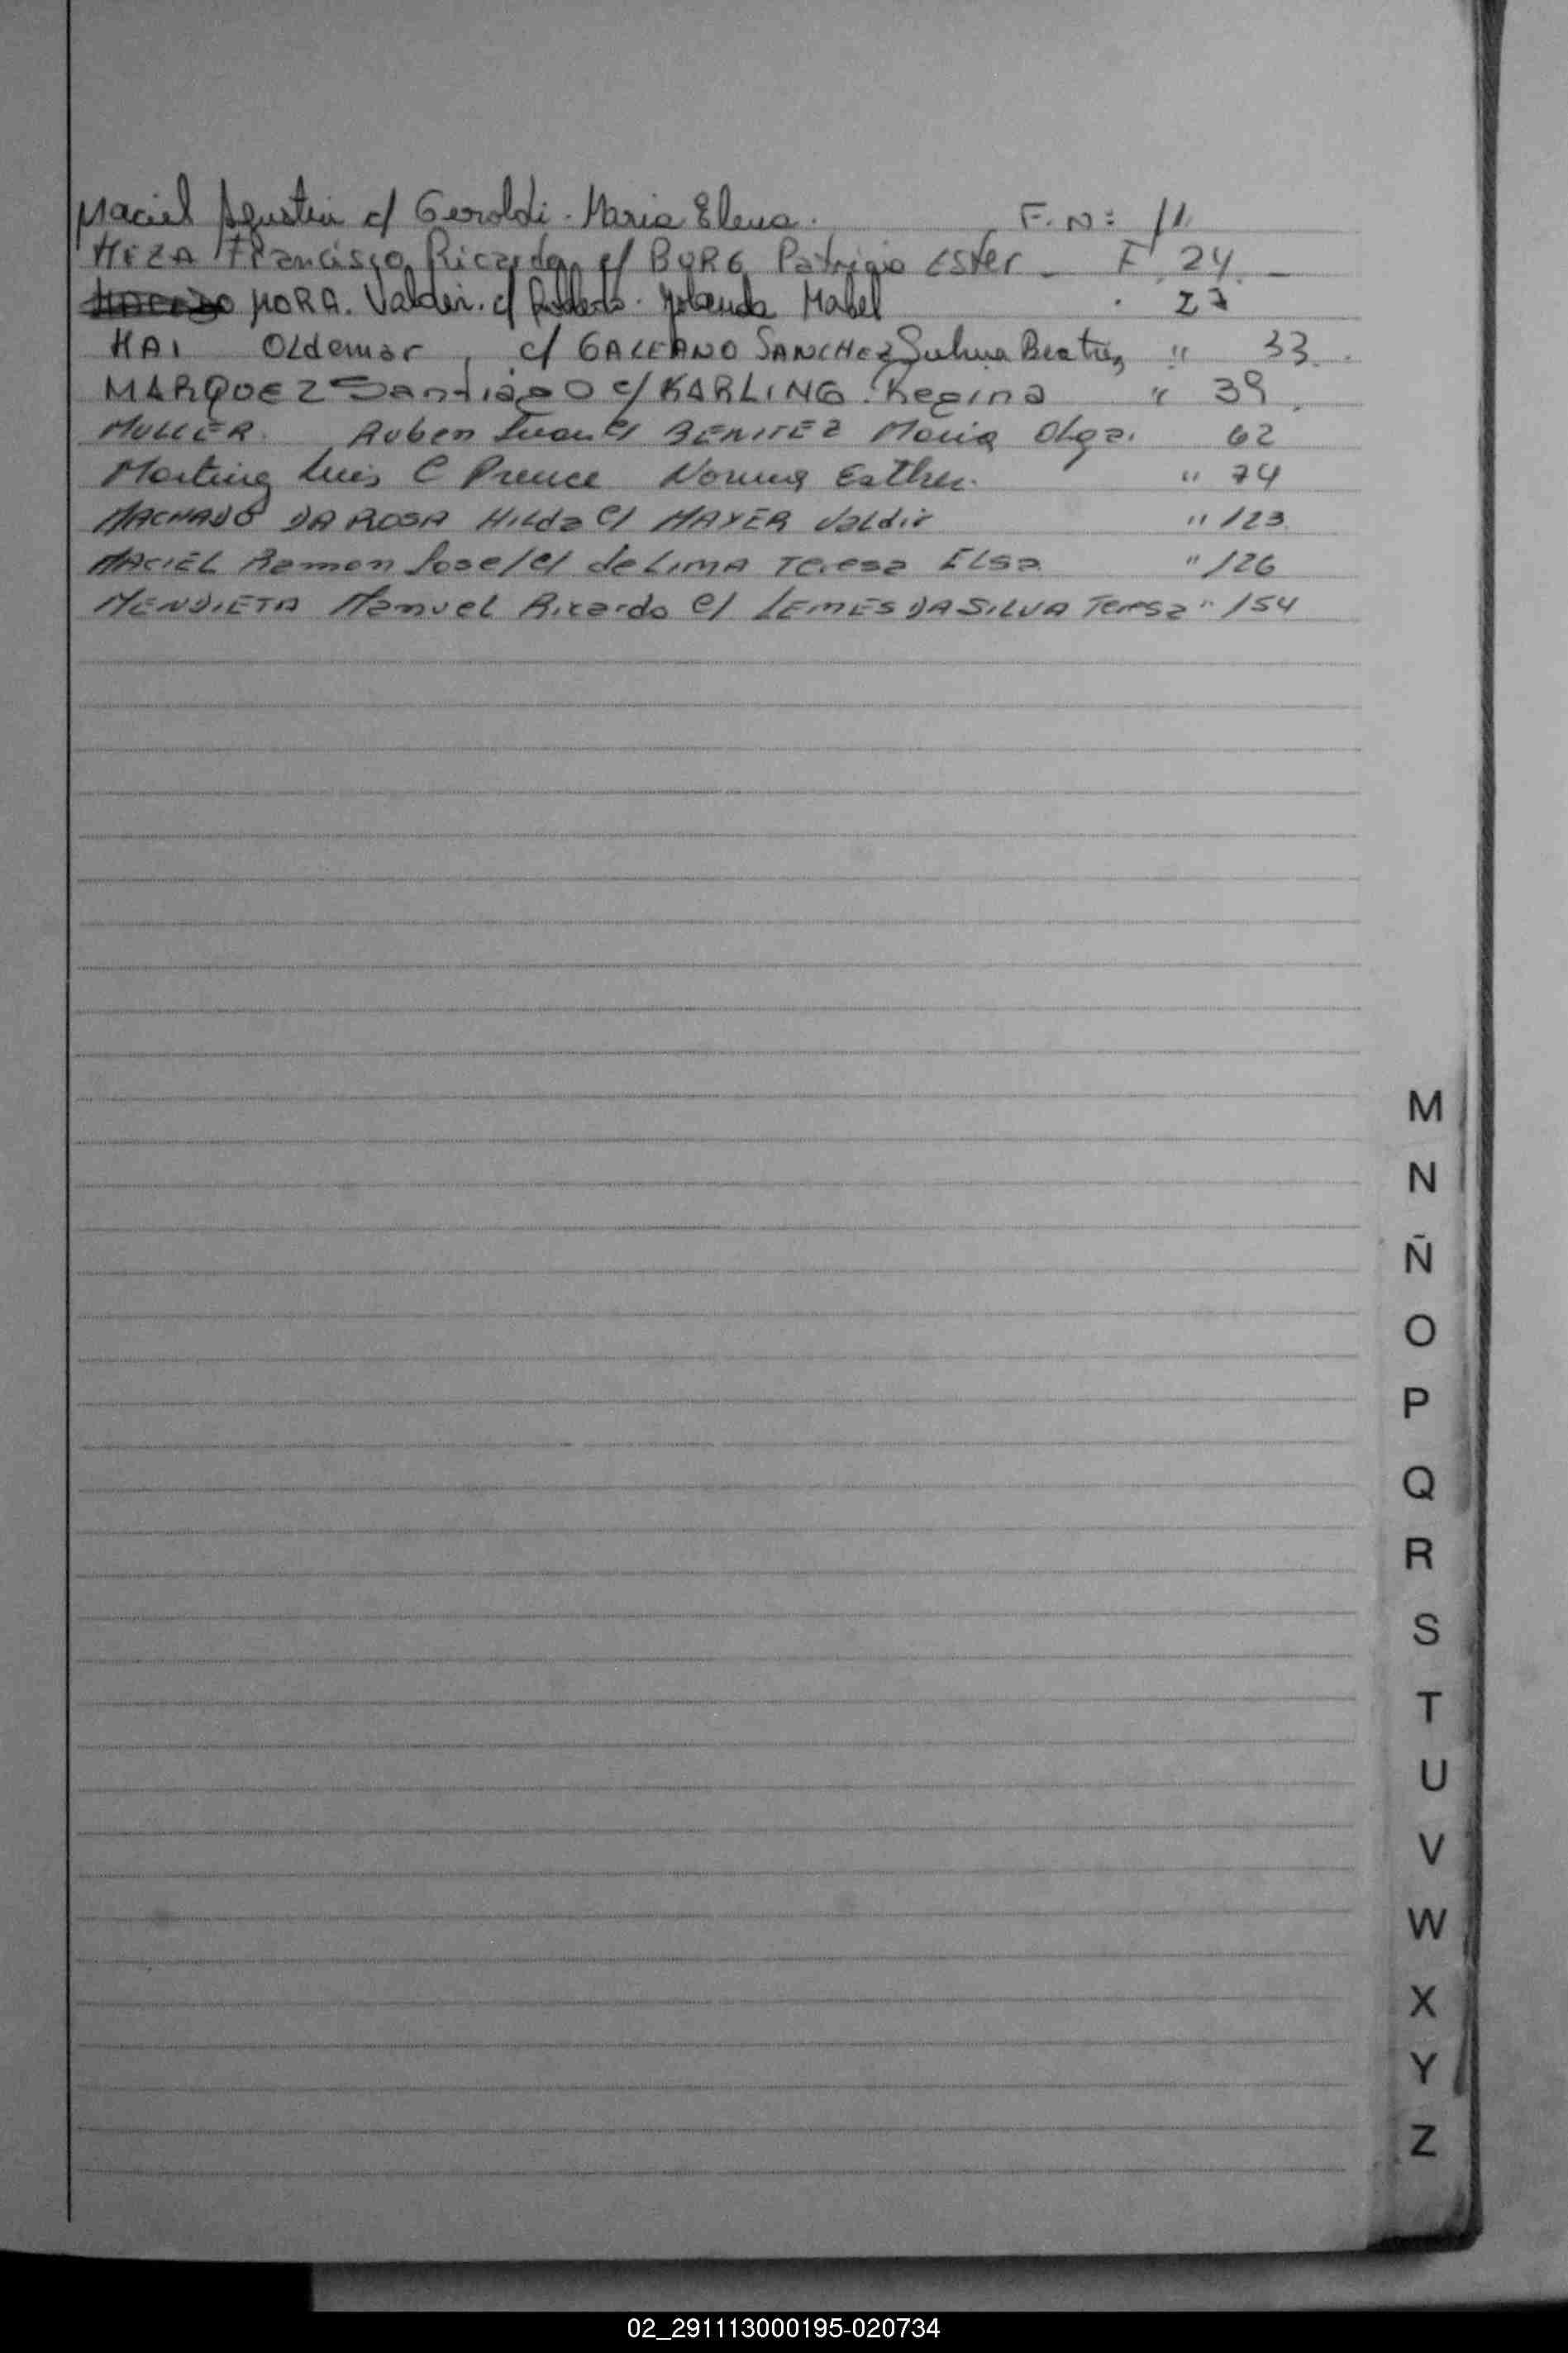 Maciel Agustin c/ Geroldi. Maria Elena. F.N: 11
MEZA Francisco Ricardo c/ BURG Patrigia Ester - F 24. -
MORA. Valdir. c/ Yolanda Mabel . 27
MAI Oldemar, c/ GALEANO SANCHEZ Sulma Beatriz " 33.
MARQUEZ Santiago c/ KARLING. Regina " 39.
MULLER. Ruben Juan c/ BENITEZ Maria Olga. 62
Luis C Norma Esther. " 74
MACHADO DA ROSA Hilda c/ MAYER Valdir " 123.
MACIEL Ramon Jose/c/ de LIMA Teresa Elsa " 126
MENDIETA Manuel Ricardo c/ LEMES DA SILVA Teresa " 154
M
N
Ñ
O
P
Q
R
S
T
U
V
W
X
Y
Z
02_291113000195-020734